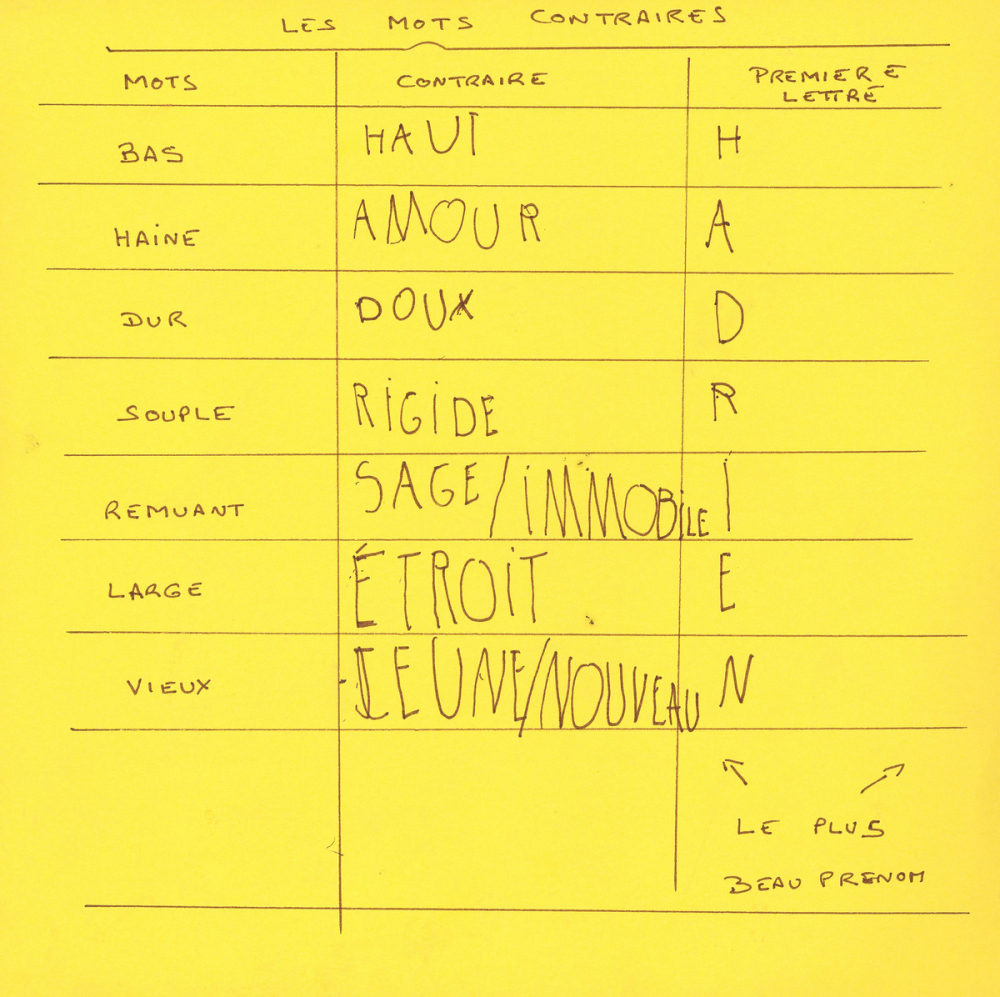 LES MOTS CONTRAIRES
MOTS CONTRAIRE PREMIERE
LETTRE
BAS HAUT H
HAINE AMOUR A
DUR DOUX D
SOUPLE RiGiDE R
REMUANT SAGE/iMMOBiLE i
LARGE ÉTROiT E
VIEUX JEUNE/NOUVEAU N
LE PLUS
BEAU PRENOM